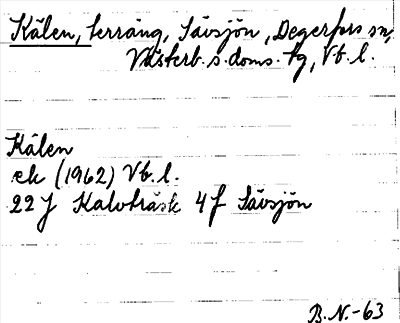 Kälen, terräng, Sävsjön, Degerfors sn,
Västerb. s. doms. tg, Vb. l.
Kälen
ek (1962) Vb. l.
22 J Kalvträsk 4f Sävsjön
B.N.-63